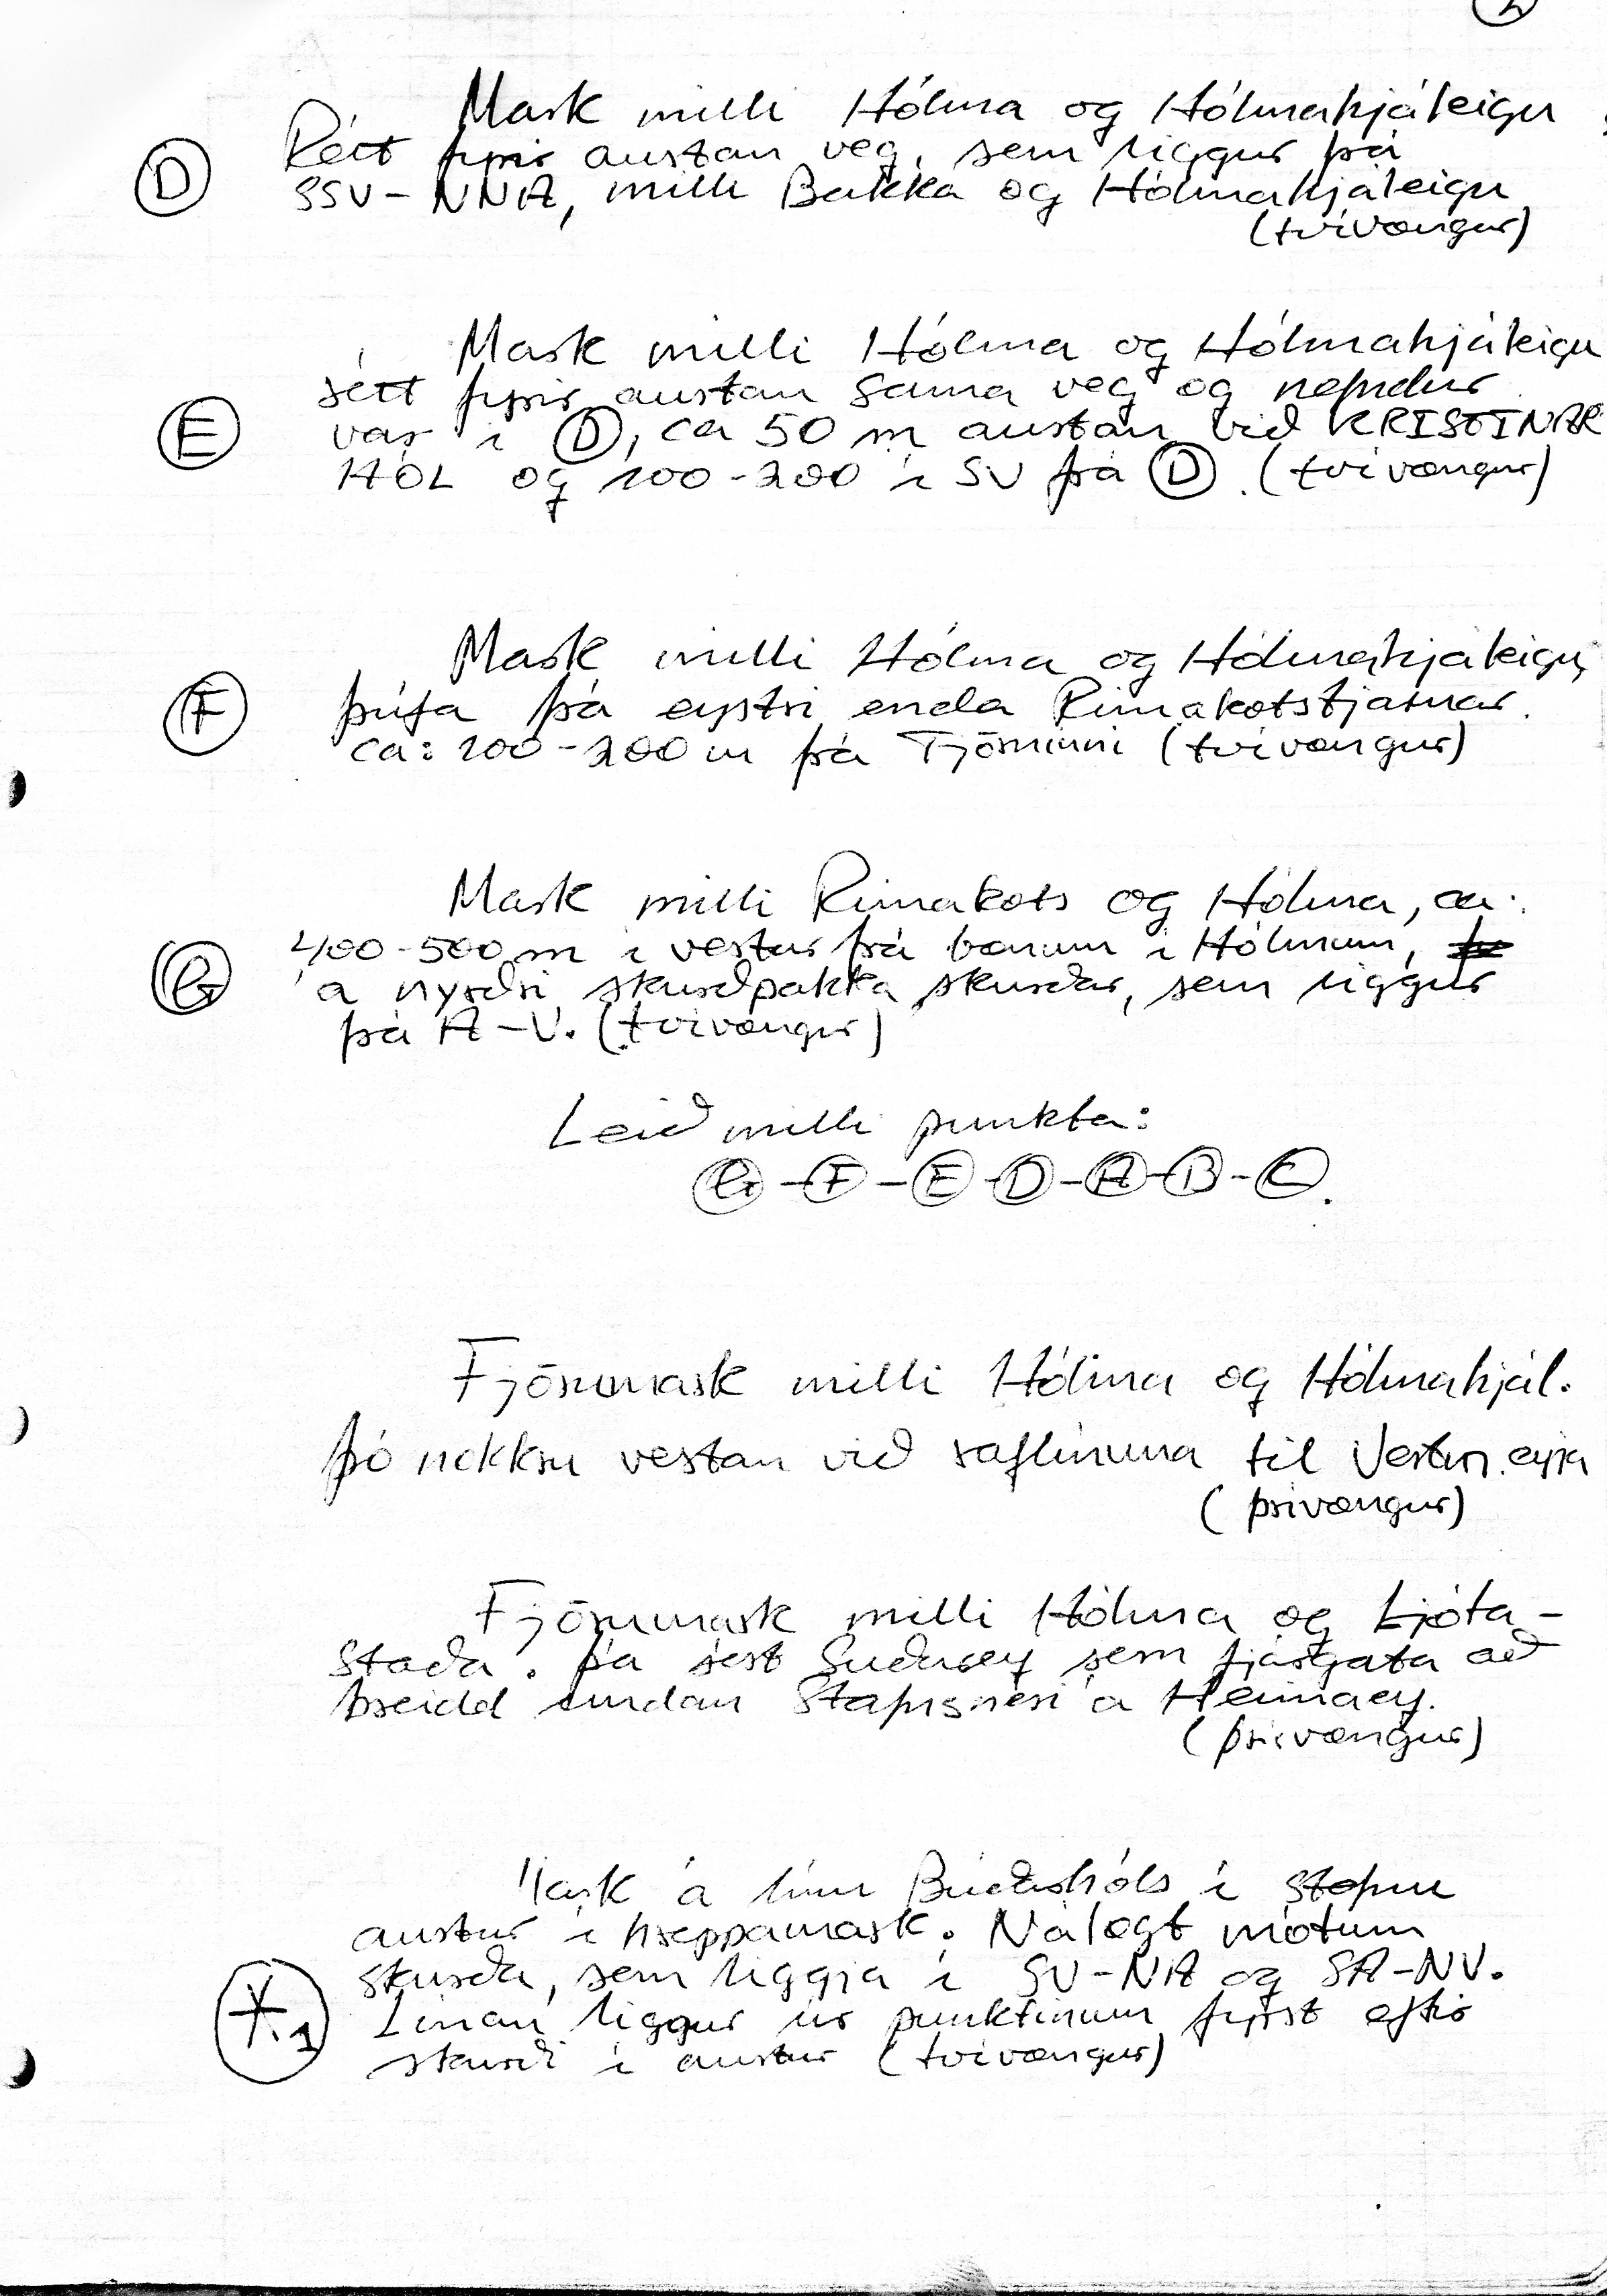 2
Mark milli Hólma og Hólmahjáleigu
Ⓓ Rétt fyrir austan veg, sem liggur frá
SSV-NNA, milli Bakka og Hólmahjáleigu
(tvívængur)
Mark milli Hólma og Hólmahjáleigu
rétt fyrir austan sama veg og nefndur
Ⓔ var í Ⓓ, ca 50 m austan við KRISTINAR
HÓL og 100-200 í SV frá Ⓓ. (tvívængur)
Mark milli Hólma og Hólmahjáleigu,
Ⓕ þúfa frá eystri enda Rimakotstjarnar.
ca: 100-200 m frá Tjörninni (tvívængur)
Mark milli Rimakots og Hólma, ca.
400-500 m í vestur frá bænum í Hólmum,
Ⓖ á nyrðri skurðbakka skurðar, sem liggur
frá A-V. (tvívængur)
Leið milli punkta:
Ⓖ-Ⓕ-Ⓔ-Ⓓ-Ⓐ-Ⓑ-Ⓒ.
Fjörumark milli Hólma og Hólmahjál.
þó nokkru vestan við raflínuna til Vestm.eyja
(þrívængur)
Fjörumark milli Hólma og Ljóta-
staða. Þá sést Suðurey sem fjárgata að
breidd undan Stapisnesi á Heimaey.
(þrívængur)
Mark á línu Búðarhóls í stefnu
austur í hreppamark. Nálægt mótum
skurða, sem liggja í SV-NA og SA-NV.
Línan liggur úr punktinum fyrst eftir
skurði í austur (tvívængur)